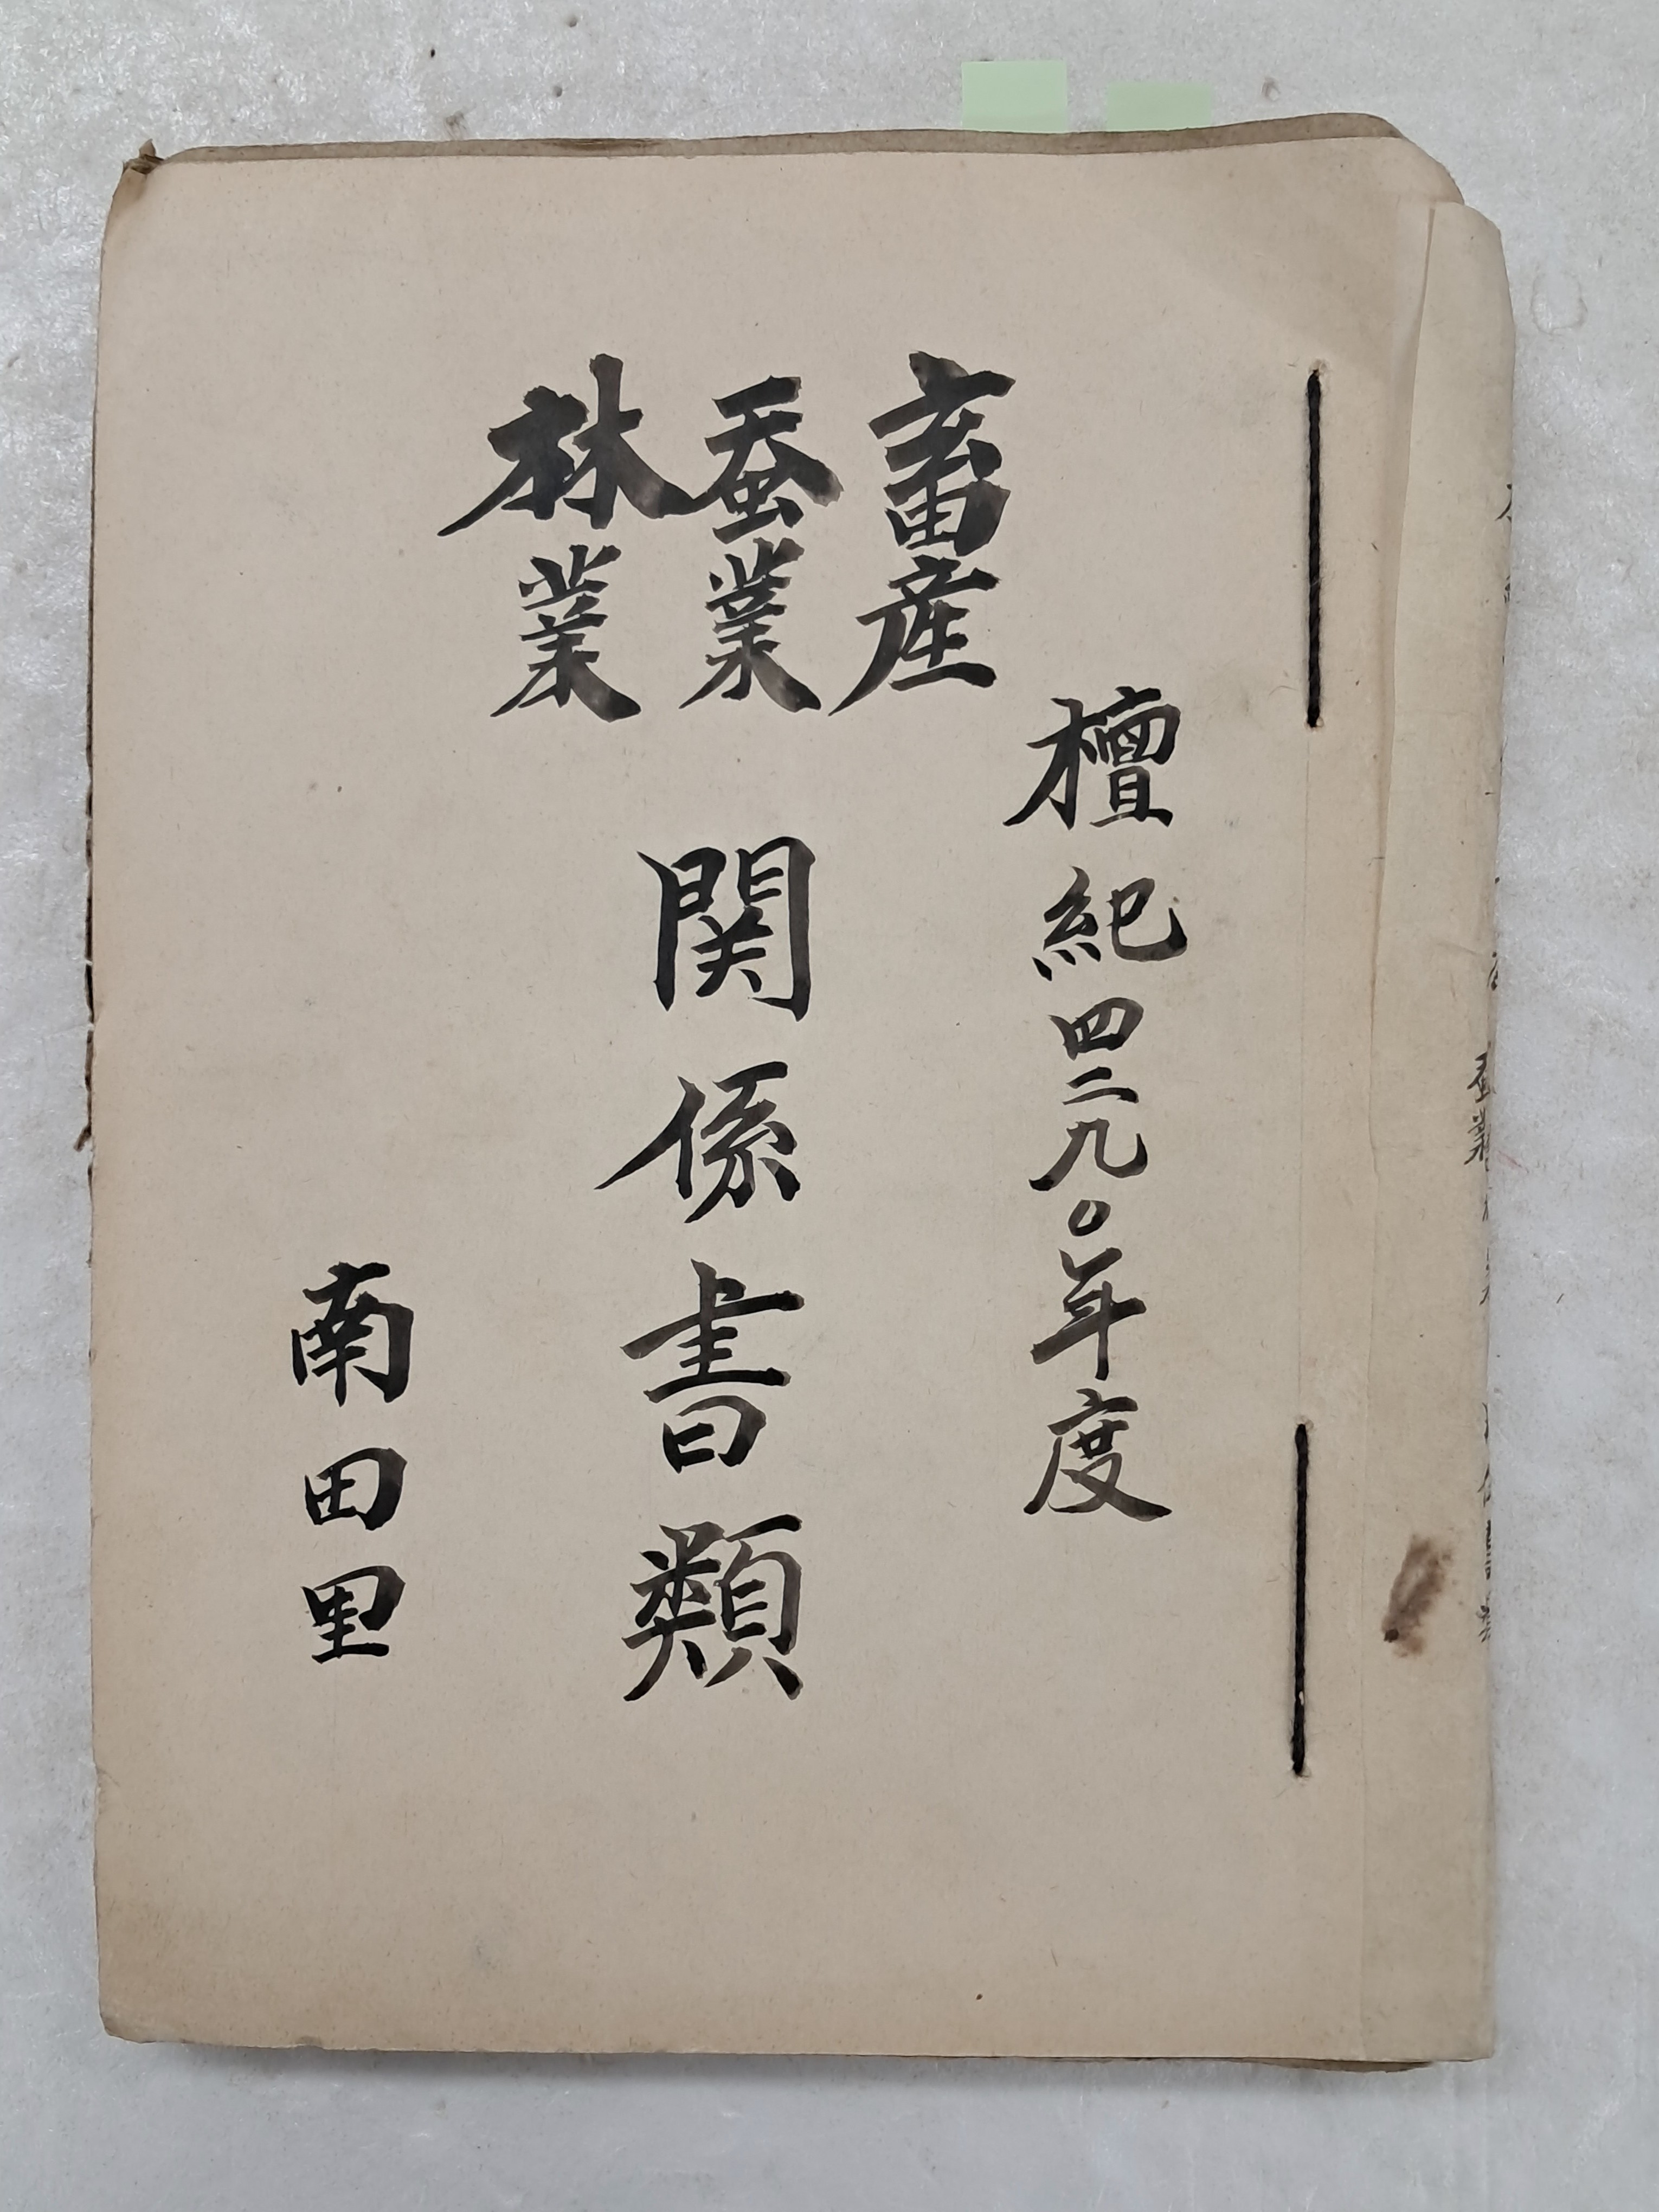 檀紀四二九〇年度
畜産
蚕業
林業
関係書類
南田里
蚕業